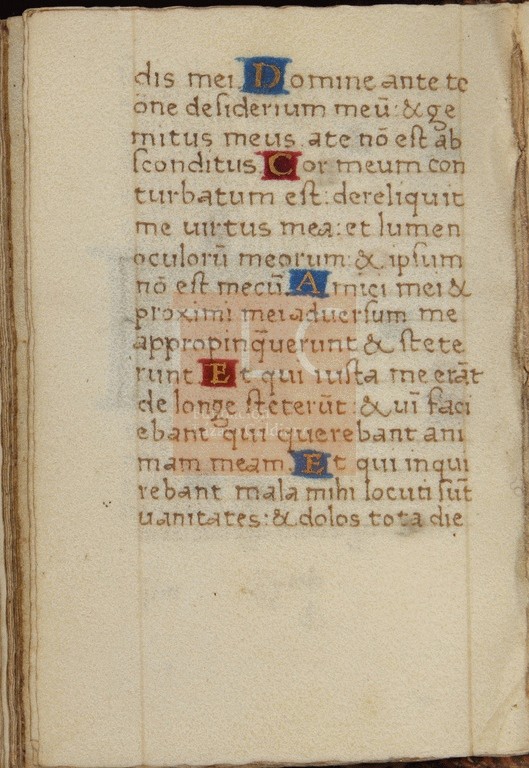 dis mei. Domine ante te
one desiderium meū: & ge
mitus meus. ate nō est ab
sconditus. Cor meum con
turbatum est: dereliquit
me uirtus mea: et lumen
oculorū meorum: & ipsum
nō est mecū. Amici mei &
proximi mei aduersum me
appropinq̄uerunt & stete
runt. Et qui iusta me erāt
de longe steterūt: & uī faci
ebant qui querebant ani
mam meam. Et qui inqui
rebant mala mihi locuti sūt
uanitates: & dolos tota die